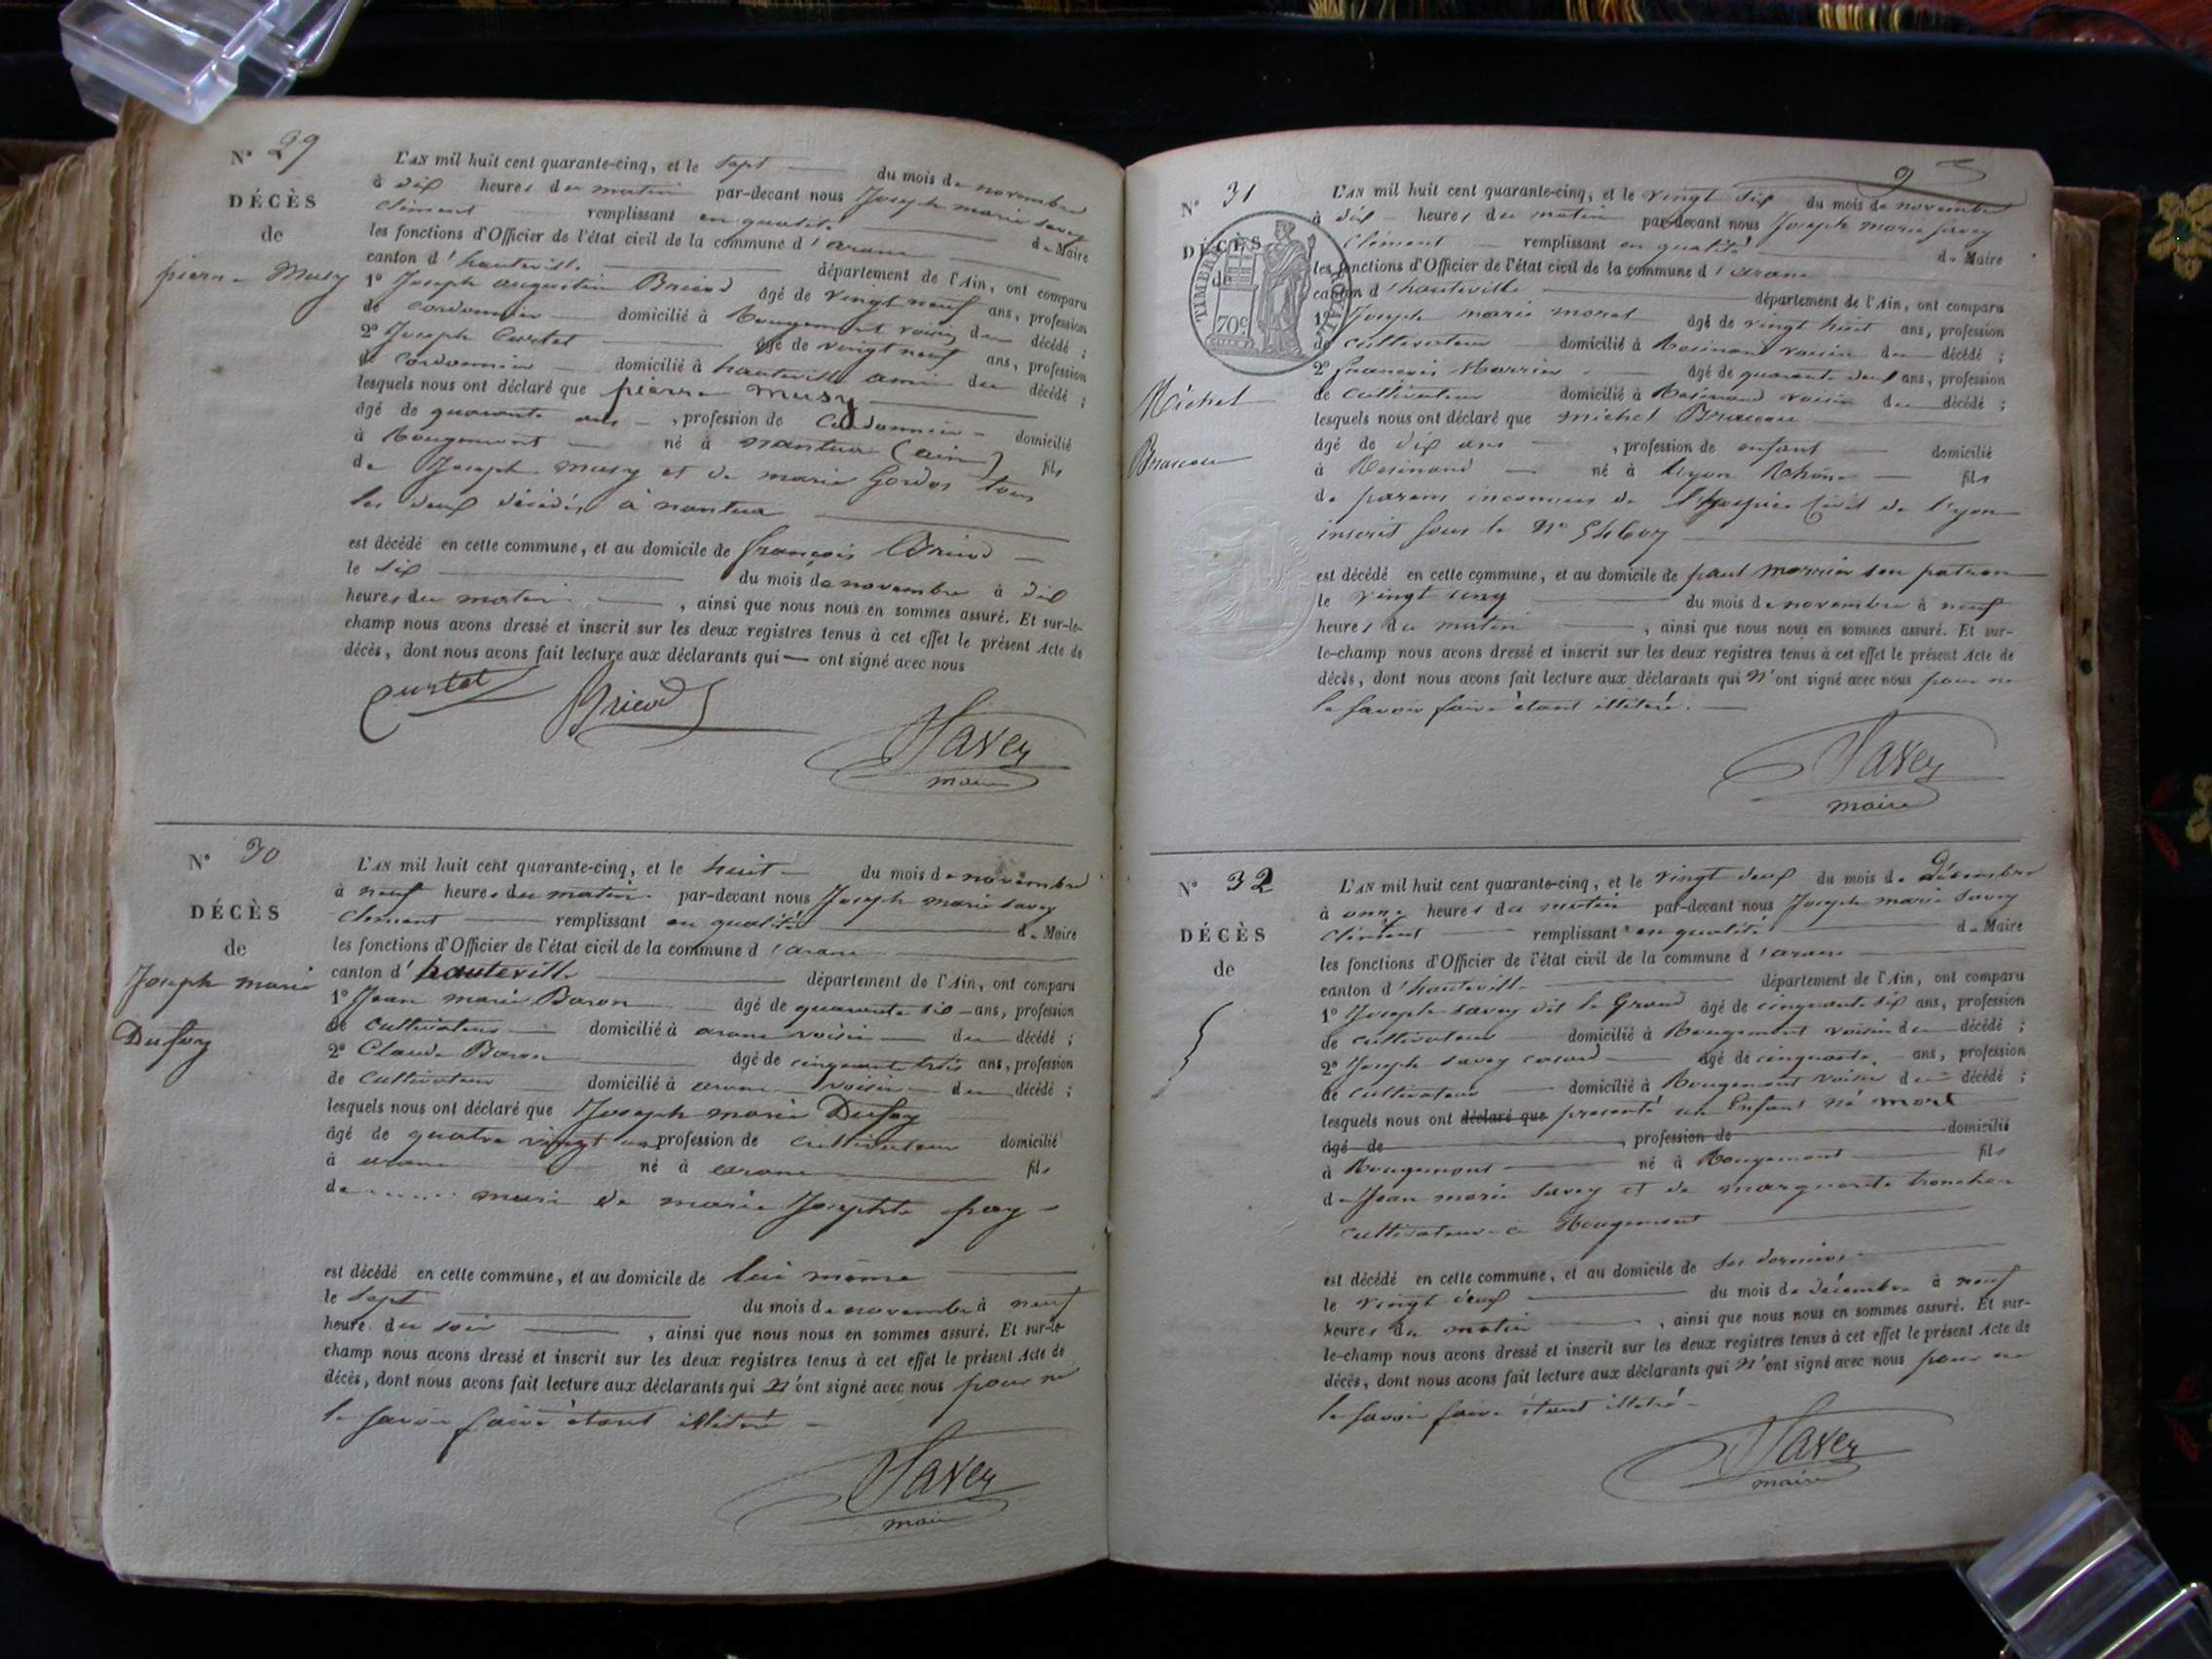 N° 29
DÉCÈS
de
pierre Musy
L'AN mil huit cent quarante-cinq, et le sept du mois de novembre
à dix heures du matin par-devant nous Joseph marie Savey
Clément remplissant en qualité de Maire
les fonctions d'Officier de l'état civil de la commune d'arane
canton d'hauteville département de l'Ain, ont comparu
1° Joseph augustin Briord âgé de vingt neuf ans, profession
de cordonnier domicilié à Rougemont voisin du décédé ;
2° Joseph Curtet âgé de vingt neuf ans, profession
de Cordonnier domicilié à hauteville ami du décédé ;
lesquels nous ont déclaré que pierre musy
âgé de quarante ans, profession de Cordonnier domicilié
à Rougemont né à nantua (ain) fils
de Joseph musy et de marie Gordos tous
les deux décédés à nantua
est décédé en cette commune, et au domicile de françois Briord
le six du mois de novembre à dix
heures du matin, ainsi que nous nous en sommes assuré. Et sur-le-
champ nous avons dressé et inscrit sur les deux registres tenus à cet effet le présent Acte de
décès, dont nous avons fait lecture aux déclarants qui — ont signé avec nous
Curtet Briord
Savey
maire
N° 30
DÉCÈS
de
Joseph marie
Dufoy
L'AN mil huit cent quarante-cinq, et le huit du mois de novembre
à neuf heures du matin par-devant nous Joseph marie Savey
Clément remplissant en qualité de Maire
les fonctions d'Officier de l'état civil de la commune d'arane
canton d'hauteville département de l'Ain, ont comparu
1° Jean marie Baron âgé de quarante six ans, profession
de cultivateur domicilié à arane voisin du décédé ;
2° Claude Baron âgé de cinquante trois ans, profession
de Cultivateur domicilié à arane voisin du décédé ;
lesquels nous ont déclaré que Joseph marie Dufoy
âgé de quatre vingt ans profession de cultivateur domicilié
à arane né à arane fils
de ...... mari de marie Josephte foy
est décédé en cette commune, et au domicile de lui même
le sept du mois de novembre à neuf
heure du soir, ainsi que nous nous en sommes assuré. Et sur-le-
champ nous avons dressé et inscrit sur les deux registres tenus à cet effet le présent Acte de
décès, dont nous avons fait lecture aux déclarants qui n'ont signé avec nous pour ne
le savoir faire étant illitéré
Savey
maire
9
N° 31
DÉCÈS
de
TIMBRE ROYAL
70c
Michel
Bruceau
L'AN mil huit cent quarante-cinq, et le vingt six du mois de novembre
à dix heures du matin par-devant nous Joseph marie Savey
Clément remplissant en qualité de Maire
les fonctions d'Officier de l'état civil de la commune d'arane
canton d'hauteville département de l'Ain, ont comparu
1° Joseph marie morel âgé de vingt huit ans, profession
de cultivateur domicilié à Resinand voisin du décédé ;
2° francois Marrin âgé de quarante deux ans, profession
de cultivateur domicilié à Resinand voisin du décédé ;
lesquels nous ont déclaré que michel Bruceau
âgé de dix ans, profession de enfant domicilié
à Resinand né à Lyon Rhône fils
de parens inconnus de l'hospice Civil de Lyon
inscrit sous le N°
est décédé en cette commune, et au domicile de paul marrin son patron
le vingt cinq du mois de novembre à neuf
heures du matin, ainsi que nous nous en sommes assuré. Et sur-
le-champ nous avons dressé et inscrit sur les deux registres tenus à cet effet le présent Acte de
décès, dont nous avons fait lecture aux déclarants qui n'ont signé avec nous pour ne
le savoir faire étant illitéré.
Savey
maire
N° 32
DÉCÈS
de
L'AN mil huit cent quarante-cinq, et le vingt deux du mois de décembre
à onze heures du matin par-devant nous Joseph marie Savey
Clément remplissant en qualité de Maire
les fonctions d'Officier de l'état civil de la commune d'arane
canton d'hauteville département de l'Ain, ont comparu
1° Joseph Savey dit le Grand âgé de cinquante six ans, profession
de cultivateur domicilié à Rougemont voisin du décédé ;
2° Joseph Savey âgé de cinquante ans, profession
de cultivateur domicilié à Rougemont voisin du décédé ;
lesquels nous ont déclaré que presenté un Enfant né mort
âgé de, profession de domicilié
à Rougemont né à Rougemont fils
de Jean marie Savey et de marguerite tronchon
cultivateur à Rougemont
est décédé en cette commune, et au domicile de ses derniers
le vingt deux du mois de décembre à neuf
heures du matin, ainsi que nous nous en sommes assuré. Et sur-
le-champ nous avons dressé et inscrit sur les deux registres tenus à cet effet le présent Acte de
décès, dont nous avons fait lecture aux déclarants qui n'ont signé avec nous pour ne
le savoir faire étant illitéré
Savey
maire